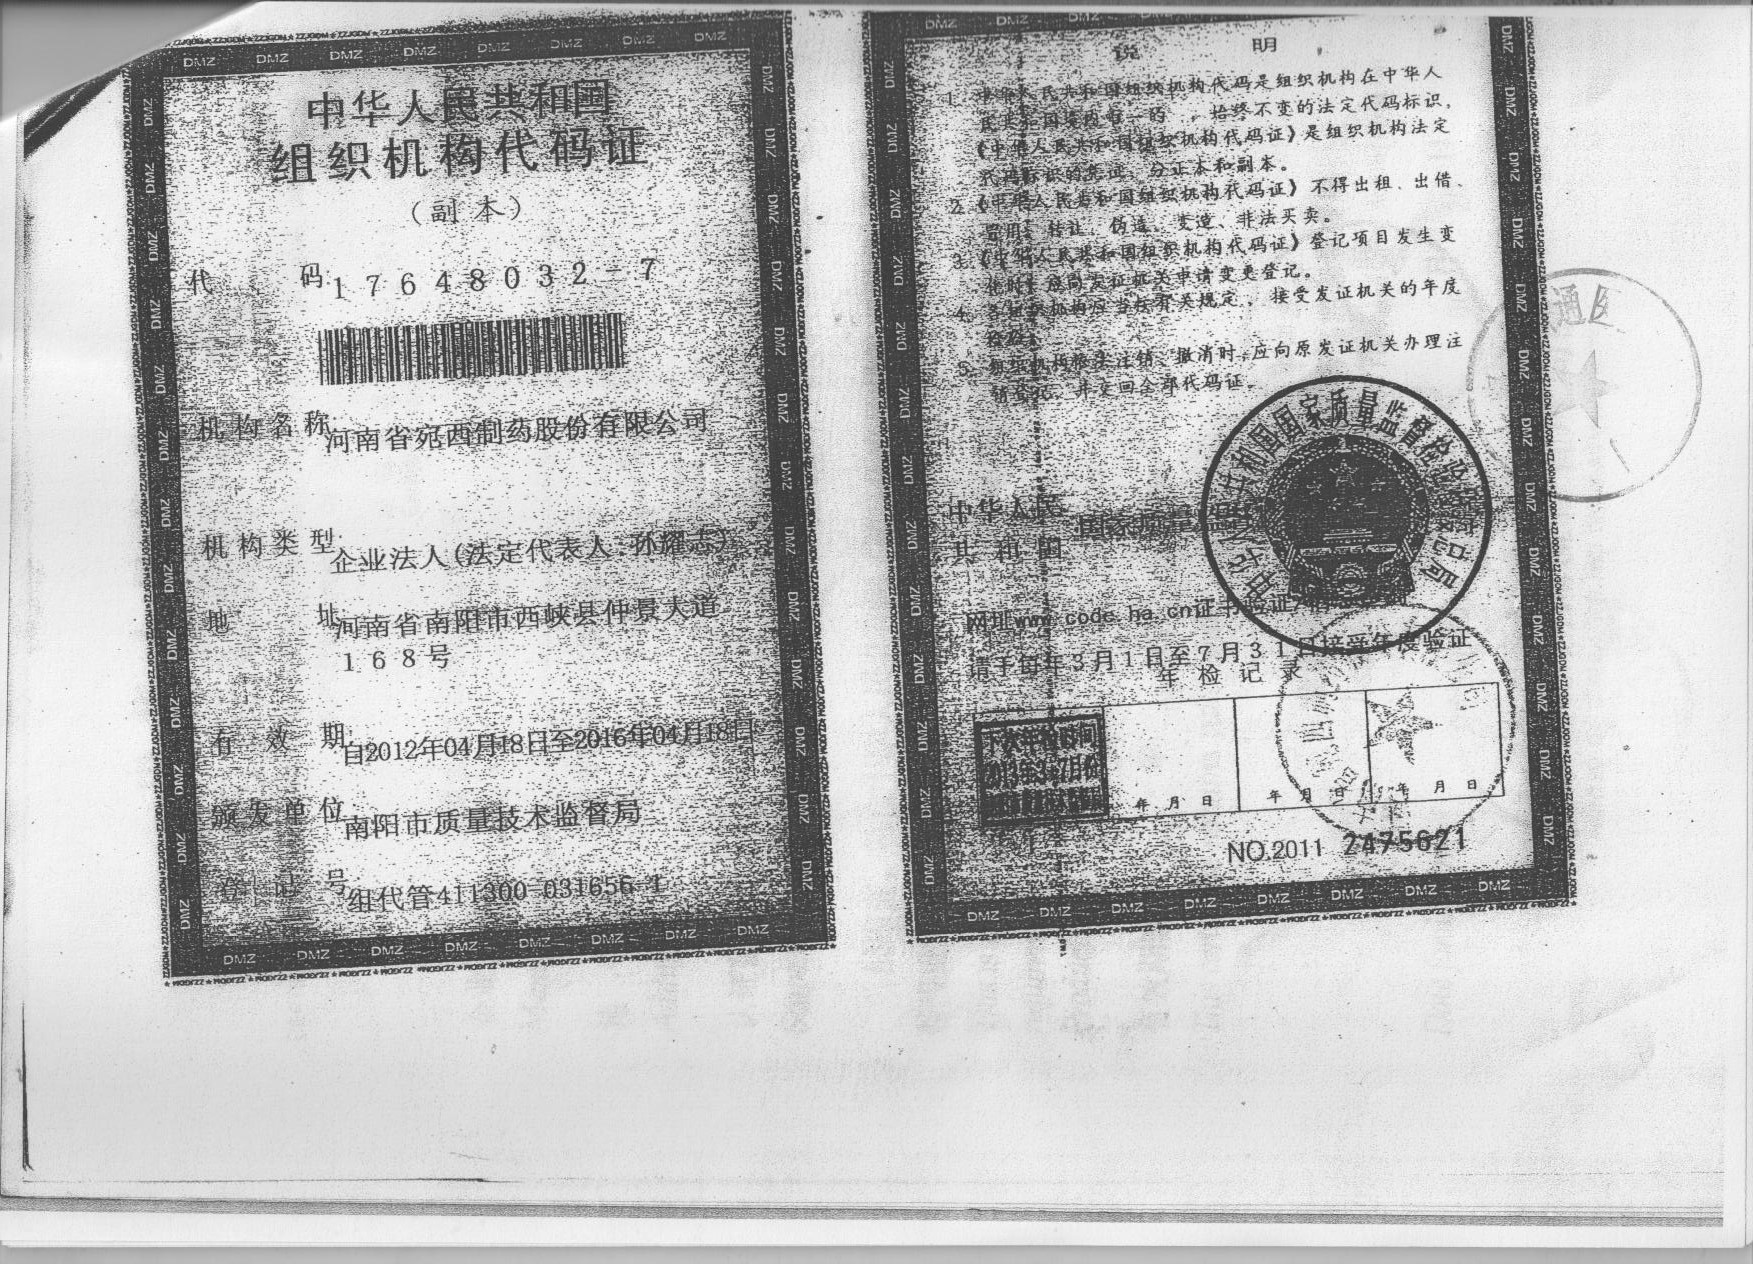 中华人民共和国
组织机构代码证
（副本）
代 码：17648032-7
机构名称：河南省宛西制药股份有限公司
机构类型：企业法人(法定代表人:孙耀志)
地 址：河南省南阳市西峡县仲景大道
168号
有 效 期：自2012年04月18日至2016年04月18日
颁发单位：南阳市质量技术监督局
登 记 号：组代管411300-031656-1
说 明
1. 中华人民共和国组织机构代码是组织机构在中华人
民共和国境内唯一的、始终不变的法定代码标识，
《中华人民共和国组织机构代码证》是组织机构法定
代码标识的凭证，分正本和副本。
2.《中华人民共和国组织机构代码证》不得出租、出借、
冒用、转让、伪造、变造、非法买卖。
3.《中华人民共和国组织机构代码证》登记项目发生变
化时，应向发证机关申请变更登记。
4. 各组织机构应当按有关规定，接受发证机关的年度
检验。
5. 组织机构依法注销、撤消时，应向原发证机关办理注
销登记，并交回全部代码证。
中华人民
共和国
国家质量监
网址www.code.ha.cn证书验证
请于每年3月1日至7月31日接受年度验证
年检记录
下次年检时间
2013年3-7月份
年 月 日
年 月 日
年 月 日
NO.2011 2475621